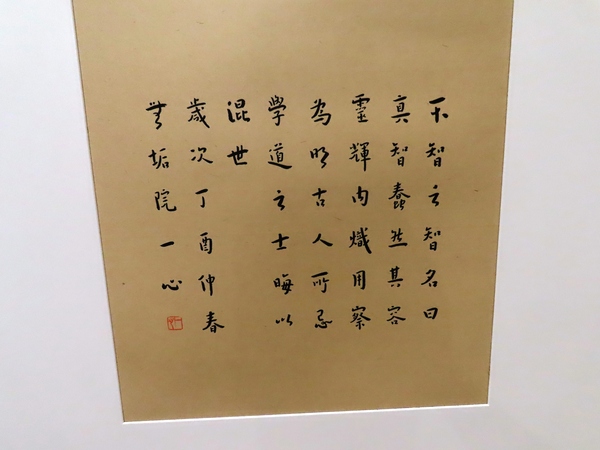 不智之智名曰
真智蠢然其容
靈輝內熾用察
為明古人所忌
學道之士晦以
混世
歲次丁酉仲春
無垢院一心